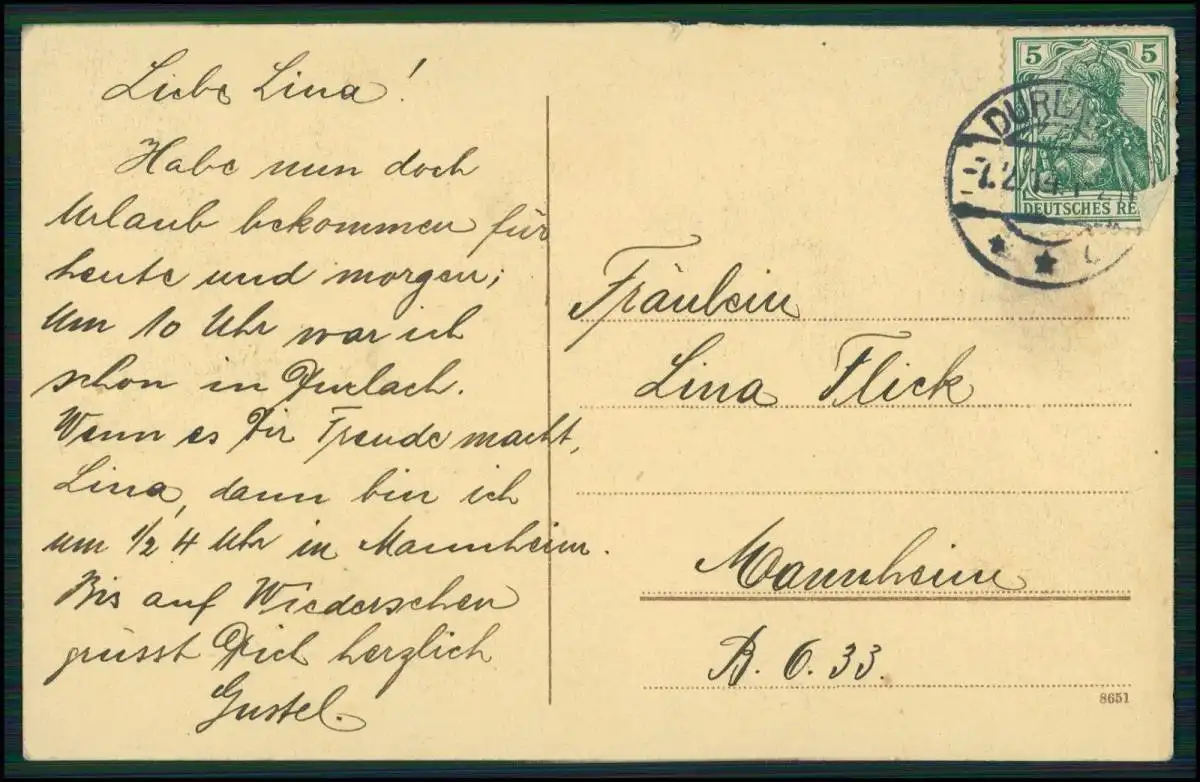 Liebe Lina!
Habe nun doch
Urlaub bekommen für
heute und morgen;
Um 10 Uhr war ich
schon in Durlach.
Wenn es Dir Freude macht,
Lina, dann bin ich
um 1/2 4 Uhr in Mannheim.
Bis auf Wiedersehen
grüsst Dich herzlich
Gustel.
5 5
DURLA
DEUTSCHES RE
Fräulein
Lina Flick
Mannheim
B. 6. 33.
8651